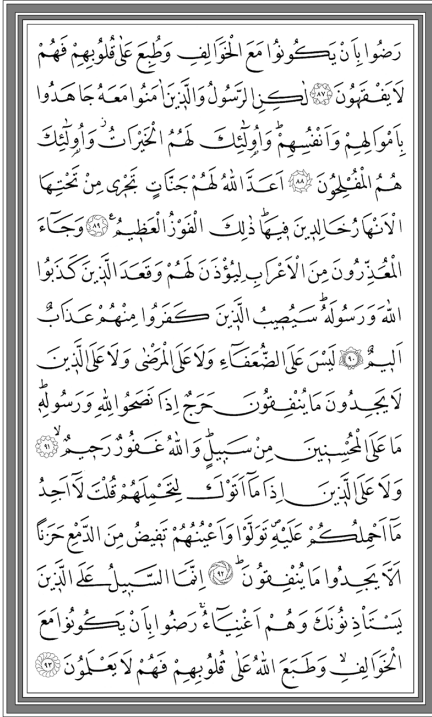 رَضُوا بِاَنْ يَكُونُوا مَعَ الْخَوَالِفِ وَطُبِعَ عَلٰى قُلُوبِهِمْ فَهُمْ
لَا يَفْقَهُونَ ﴿٨٧﴾ لٰكِنِ الرَّسُولُ وَالَّذ۪ينَ اٰمَنُوا مَعَهُ جَاهَدُوا
بِاَمْوَالِهِمْ وَاَنْفُسِهِمْۜ وَاُو۬لٰٓئِكَ لَهُمُ الْخَيْرَاتُۘ وَاُو۬لٰٓئِكَ
هُمُ الْمُفْلِحُونَ ﴿٨٨﴾ اَعَدَّ اللّٰهُ لَهُمْ جَنَّاتٍ تَجْر۪ي مِنْ تَحْتِهَا
الْاَنْهَارُ خَالِد۪ينَ ف۪يهَاۜ ذٰلِكَ الْفَوْزُ الْعَظ۪يمُ۟ ﴿٨٩﴾ وَجَٓاءَ
الْمُعَذِّرُونَ مِنَ الْاَعْرَابِ لِيُؤْذَنَ لَهُمْ وَقَعَدَ الَّذ۪ينَ كَذَبُوا
اللّٰهَ وَرَسُولَهُۜ سَيُص۪يبُ الَّذ۪ينَ كَفَرُوا مِنْهُمْ عَذَابٌ
اَل۪يمٌ ﴿٩٠﴾ لَيْسَ عَلَى الضُّعَفَٓاءِ وَلَا عَلَى الْمَرْضٰى وَلَا عَلَى الَّذ۪ينَ
لَا يَجِدُونَ مَا يُنْفِقُونَ حَرَجٌ اِذَا نَصَحُوا لِلّٰهِ وَرَسُولِه۪ۜ
مَا عَلَى الْمُحْسِن۪ينَ مِنْ سَب۪يلٍۜ وَاللّٰهُ غَفُورٌ رَح۪يمٌۙ ﴿٩١﴾
وَلَا عَلَى الَّذ۪ينَ اِذَا مَٓا اَتَوْكَ لِتَحْمِلَهُمْ قُلْتَ لَٓا اَجِدُ
مَٓا اَحْمِلُكُمْ عَلَيْهِۖ تَوَلَّوْا وَاَعْيُنُهُمْ تَف۪يضُ مِنَ الدَّمْعِ حَزَنًا
اَلَّا يَجِدُوا مَا يُنْفِقُونَۜ ﴿٩٢﴾ اِنَّمَا السَّب۪يلُ عَلَى الَّذ۪ينَ
يَسْتَأْذِنُونَكَ وَهُمْ اَغْنِيَٓاءُۚ رَضُوا بِاَنْ يَكُونُوا مَعَ
الْخَوَالِفِۙ وَطَبَعَ اللّٰهُ عَلٰى قُلُوبِهِمْ فَهُمْ لَا يَعْلَمُونَ ﴿٩٣﴾